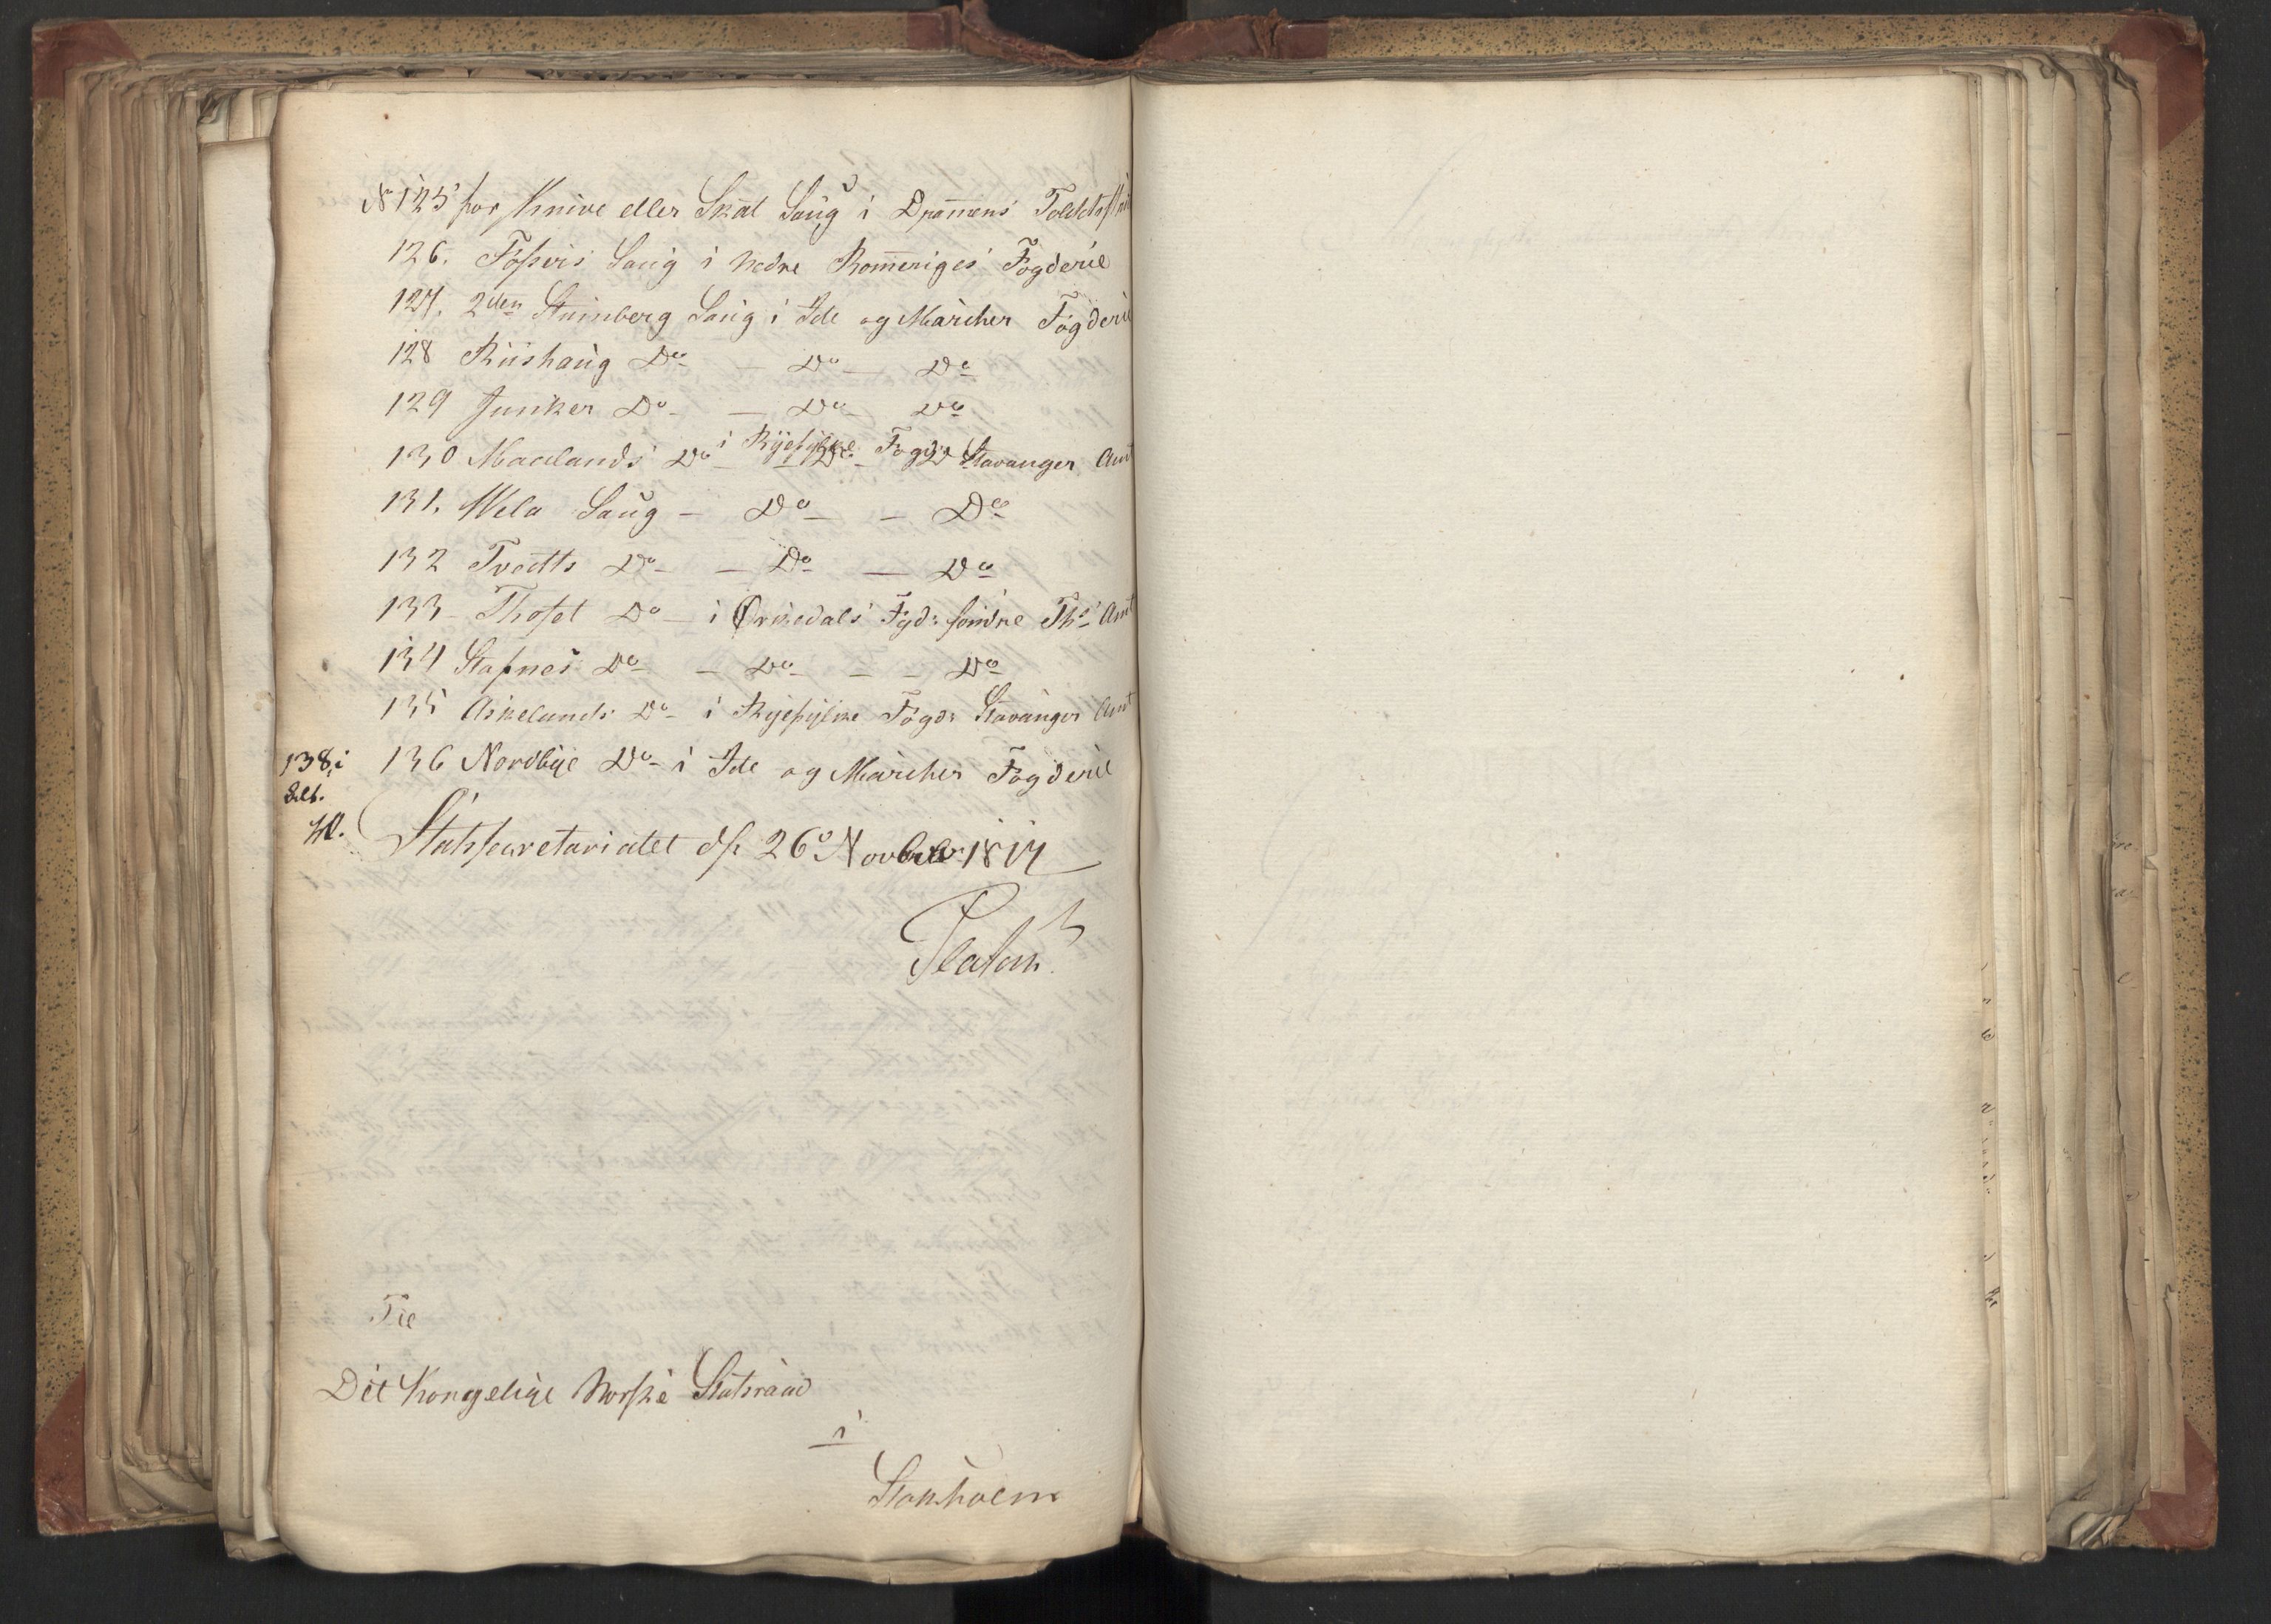 № 125 for Knive eller Skal Saug i Dramens Toldst
126. Fossvis Saug i Nedre Romeriges Fogderie
127. 2den Steinberg Saug i Ide og Marcher Fogderie
128 Riishaug Do - Do - Do
129 Junker Do - Do Do
130 Maelands Do i Ryefylke Fogd: Stavanger Amt
131. Wela Saug - Do - Do
132 Tvedts Do - Do - Do
133 - Thoset Do - i Ørkedals Fgd: söndre Ths Amt
134 Stafnes Do - Do - - Do
135 Askelands Do i Ryefylke Fogd: Stavanger Amt
136 Nordbye Do i Ide og Marcher Fogderie
138, i
40.
Statssecretariatet d. 26 Novbr 1817
Til
Det Kongelige Norske Statsraad
i
Stokholm